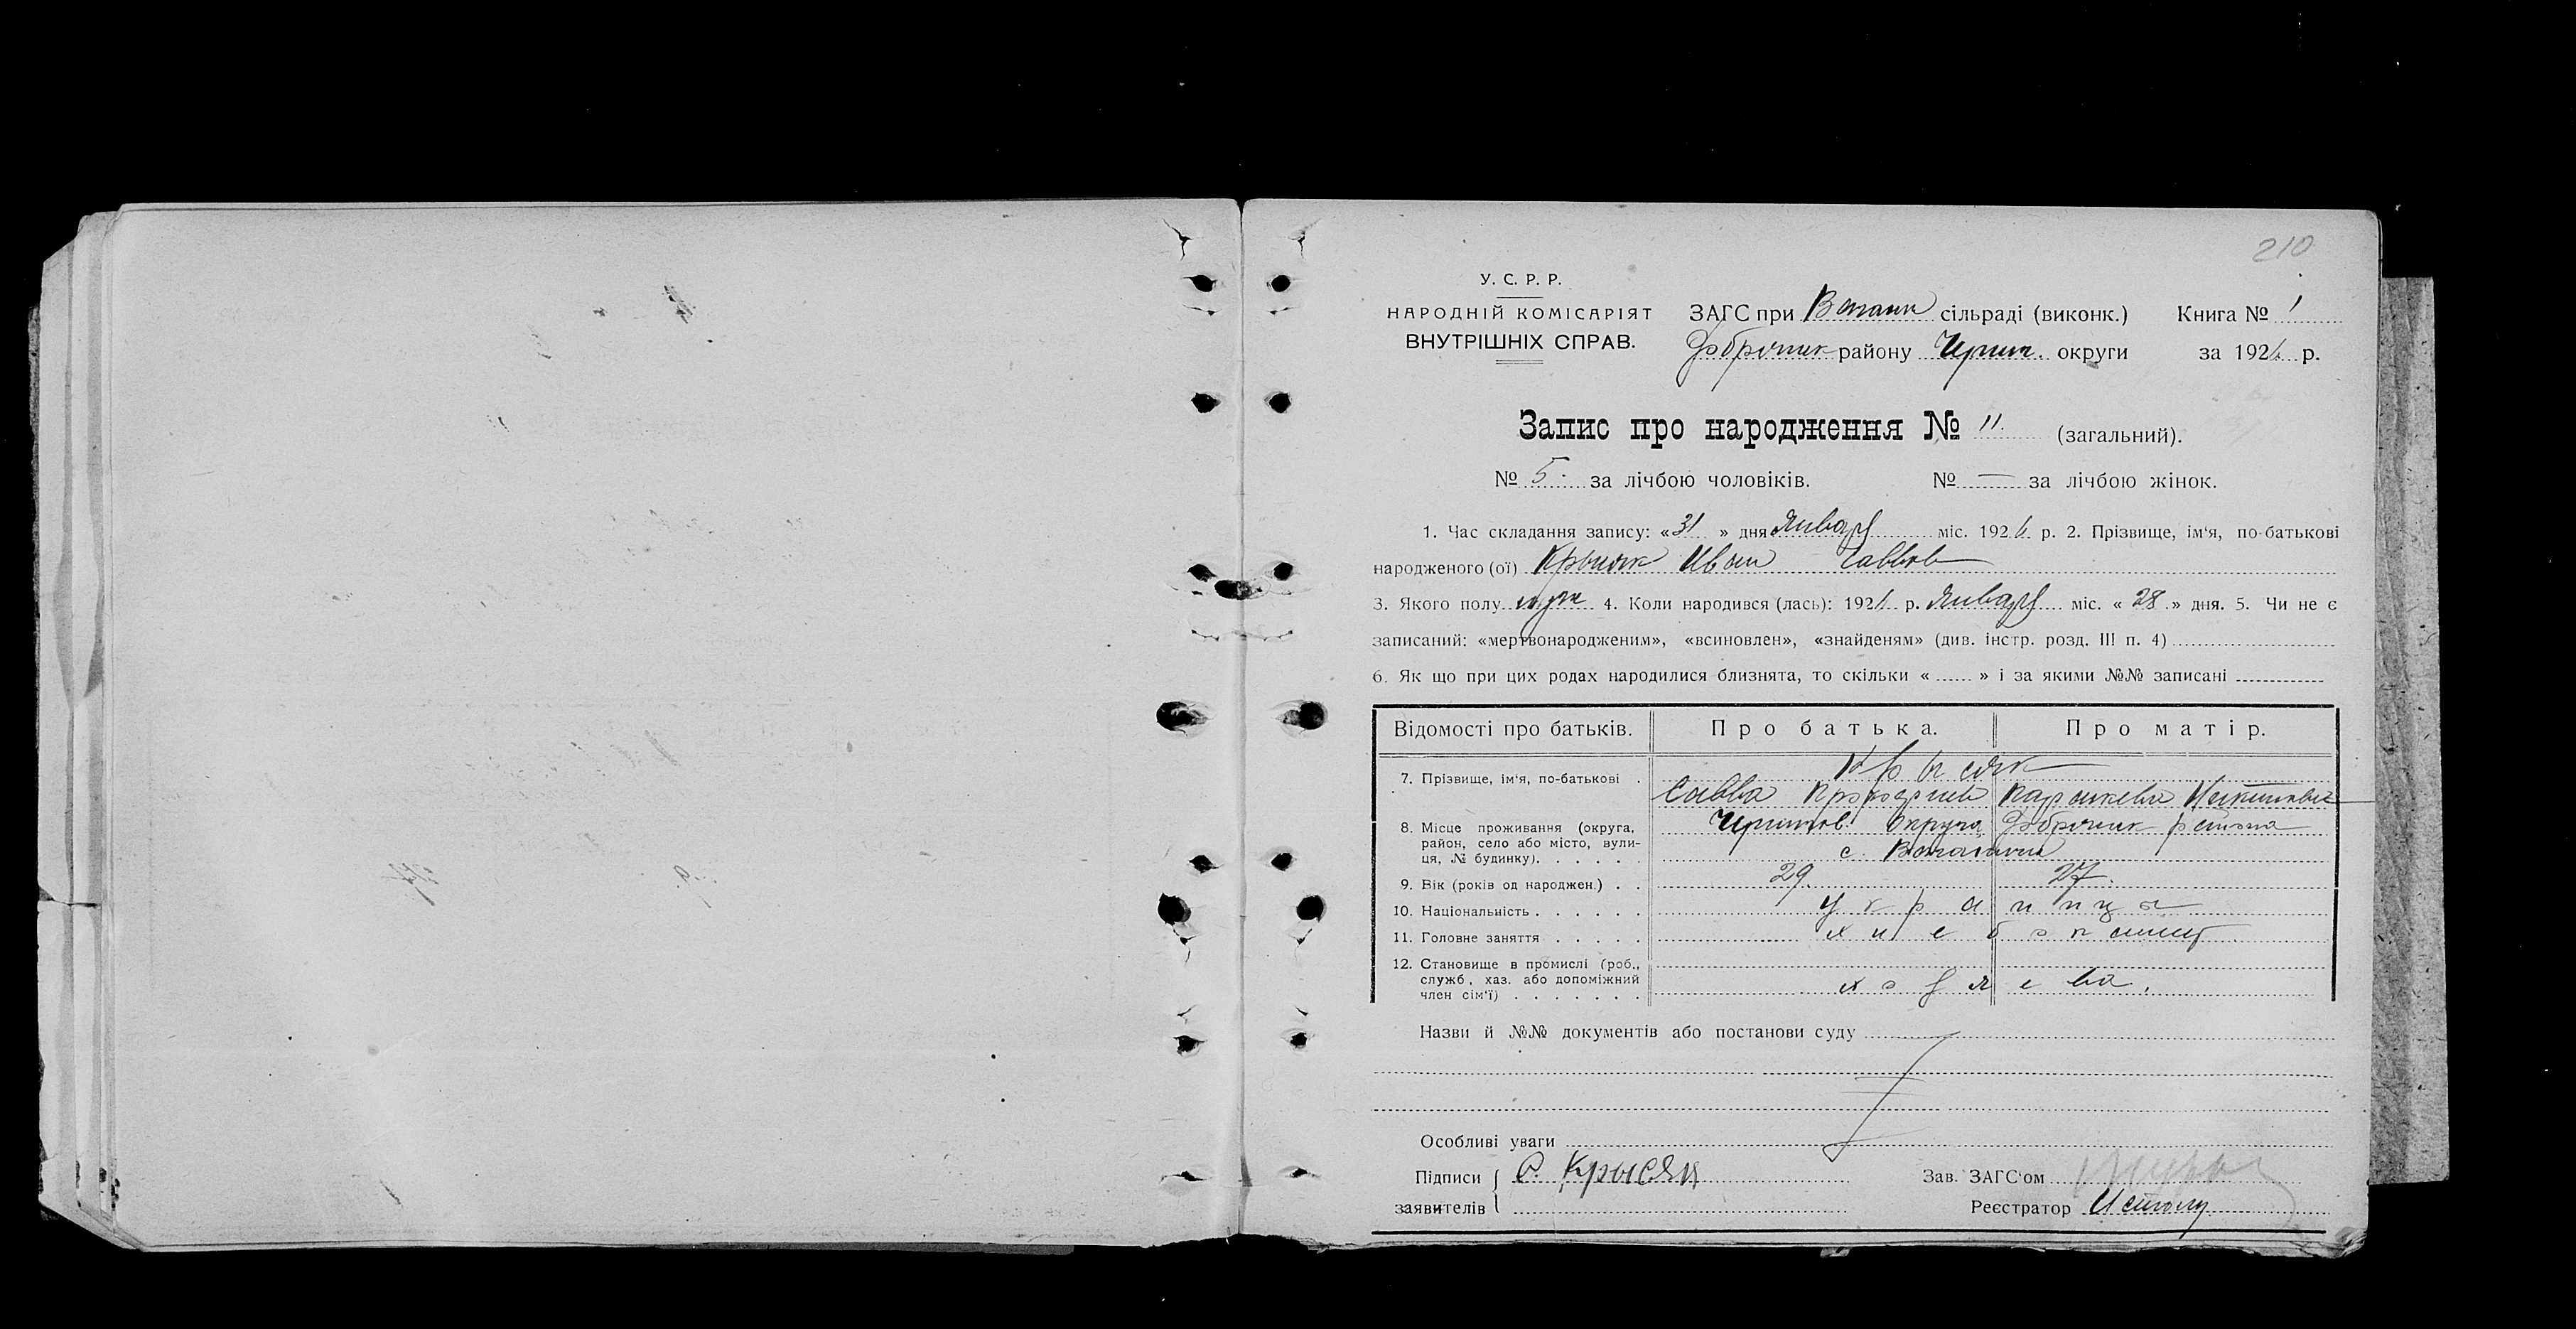 210
У. С. Р. Р.
НАРОДНІЙ КОМІСАРІЯТ
ВНУТРІШНІХ СПРАВ.
ЗАГС при сільраді (виконк.) Книга № 1
району Черниг. округи за 1926 р.
Запис про народження № 11. (загальний).
№ 5. за лічбою чоловіків. № — за лічбою жінок.
1. Час складання запису: «31» дня Января міс. 1926 р. 2. Прізвище, ім'я, по-батькові
народженого (ої) Крысяк Иван Саввов
3. Якого полу муж 4. Коли народився (лась): 192 р. Января міс. «28» дня. 5. Чи не є
записаний: «мертвонародженим», «всиновлен», «знайденям» (див. інстр. розд. III п. 4)
6. Як що при цих родах народилися близнята, то скільки « » і за якими №№ записані
Відомості про батьків. Про батька. Про матір.
7. Прізвище, ім'я, по-батькові . Крысяк
Савва
8. Місце проживання (округа, Чернигов. округа района
район, село або місто, вули-
ця, № будинку). . . . . с.
9. Вік (років од народжен.) . . 29. 27.
10. Національність . . . . . . украинцы
11. Головне заняття . . . . . хлебопашцы
12. Становище в промислі (роб.,
служб, хаз. або допоміжний
член сім'ї) . . . . . . . хозяева.
Назви й №№ документів або постанови суду
Особливі уваги
Підписи С. Крысяк Зав. ЗАГС'ом
заявителів Реєстратор